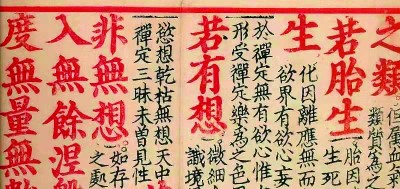 之類 但屬血
類質為
若胎生 胎因
生死
生 化因離應無而
欲界有欲心妄
於禪定無有欲心惟
形受禪定樂為之色
若有想 微細
識境
慾想乾枯無想天中
禪定三昧未曾見性
非無想 如存
之處
入無餘涅
度無量無